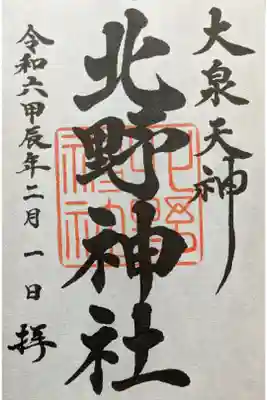 大泉天神
北野神社
令和六甲辰年二月一日 拝
北野
神社